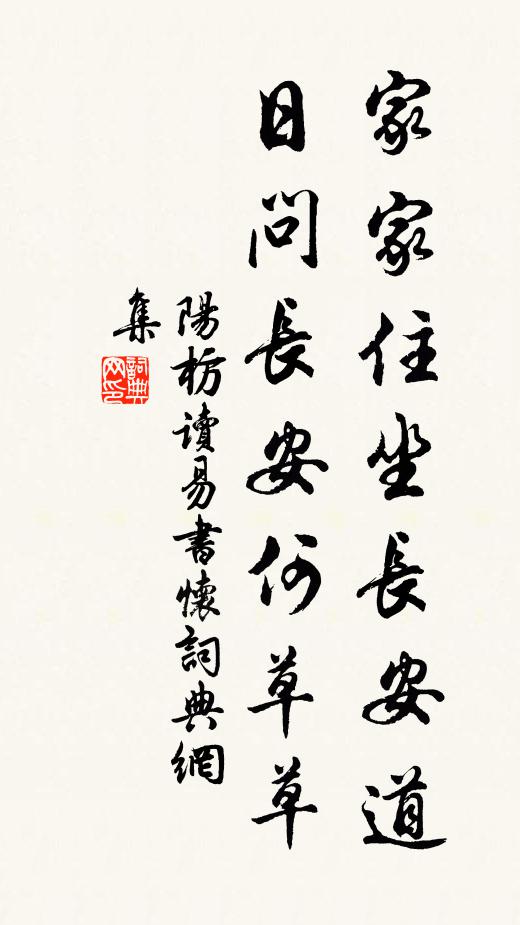 家家住坐長安道
日問長安何草草
陽枋讀易書懷詞典網
集
詞典
网印